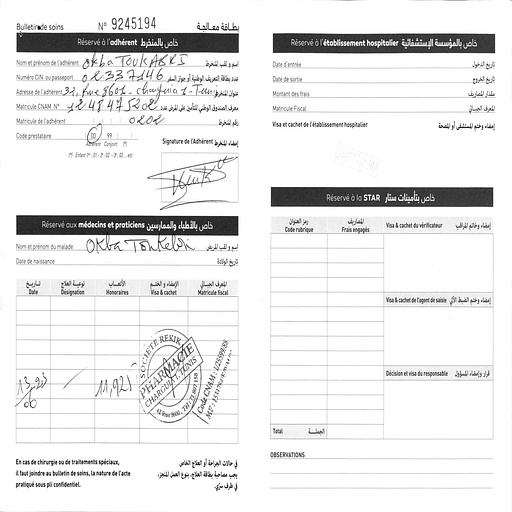 Bulletin de soins N° 9245194 بطاقة معالجة
Réservé à l'adhérent خاص بالمنخرط
Nom et prénom de l'adhérent Okba اسم و لقب المنخرط
Numéro CIN ou passeport 02337146 عدد بطاقة التعريف الوطنية أو جواز السفر
Adresse de l'adhérent 33, Rue 8601 - charguia 1 - Tunis عنوان المنخرط
Matricule CNAM N° معرف الصندوق الوطني للتأمين على المرض عدد
Matricule de l'adhérent 0202 رقم المنخرط
Code prestataire 00 99
Adhérent Conjoint (*)
(*) : Enfant 1er : 01 - 2e : 02 - 3e : 03 ... etc
Signature de l'Adhérent إمضاء المنخرط
Réservé aux médecins et praticiens خاص بالأطباء والممارسين
Nom et prénom du malade Okba اسم و لقب المريض
Date de naissance تاريخ الولادة
تاريخ نوعية العلاج الأتعاب الإمضاء و الختم المعرف الجبائي
Date Désignation Honoraires Visa & cachet Matricule fiscal
SOCIETE REKIK
PHARMACIE
CHARGUIA 1. TUNIS
11,921
En cas de chirurgie ou de traitements spéciaux,
il faut joindre au bulletin de soins, la nature de l'acte
pratiqué sous pli confidentiel.
في حالات الجراحة أو العلاج الخاص
يجب مصاحبة بطاقة العلاج، بنوع العمل المنجز،
في ظرف سري.
Réservé à l'établissement hospitalier خاص بالمؤسسة الإستشفائية
Date d'entrée تاريخ الدخول
Date de sortie تاريخ الخروج
Montant des frais مقدار المصاريف
Matricule Fiscal المعرف الجبائي
Visa et cachet de l'établissement hospitalier إمضاء وختم المستشفى أو المصحة
Réservé à la STAR خاص بتأمينات ستار
رمز العنوان المصاريف
Code rubrique Frais engagés Visa & cachet du vérificateur إمضاء وخاتم المراقب
Visa & cachet de l'agent de saisie إمضاء وختم الضبط الآلي
Décision et visa du responsable قرار وإمضاء المسؤول
Total الجملة
OBSERVATIONS